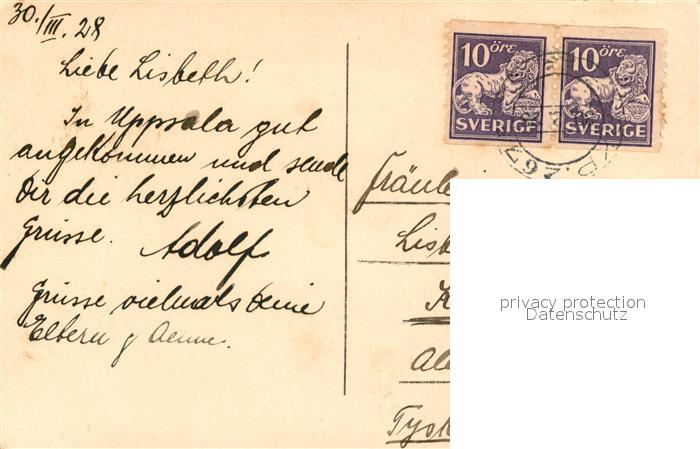 30./III. 28
Liebe Lisbeth!
In Uppsala gut
angekommen und sende
Dir die herzlichsten
Grüsse. Adolf
Grüsse vielmals Deine
Eltern
10 öre 10 öre
SVERIGE SVERIGE
Fräule
Lisb
K
Tysk
privacy protection
Datenschutz